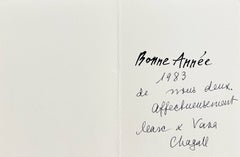 Bonne Année
1983
de nous deux.
Affectueusement
Marc x Vava
Chagall